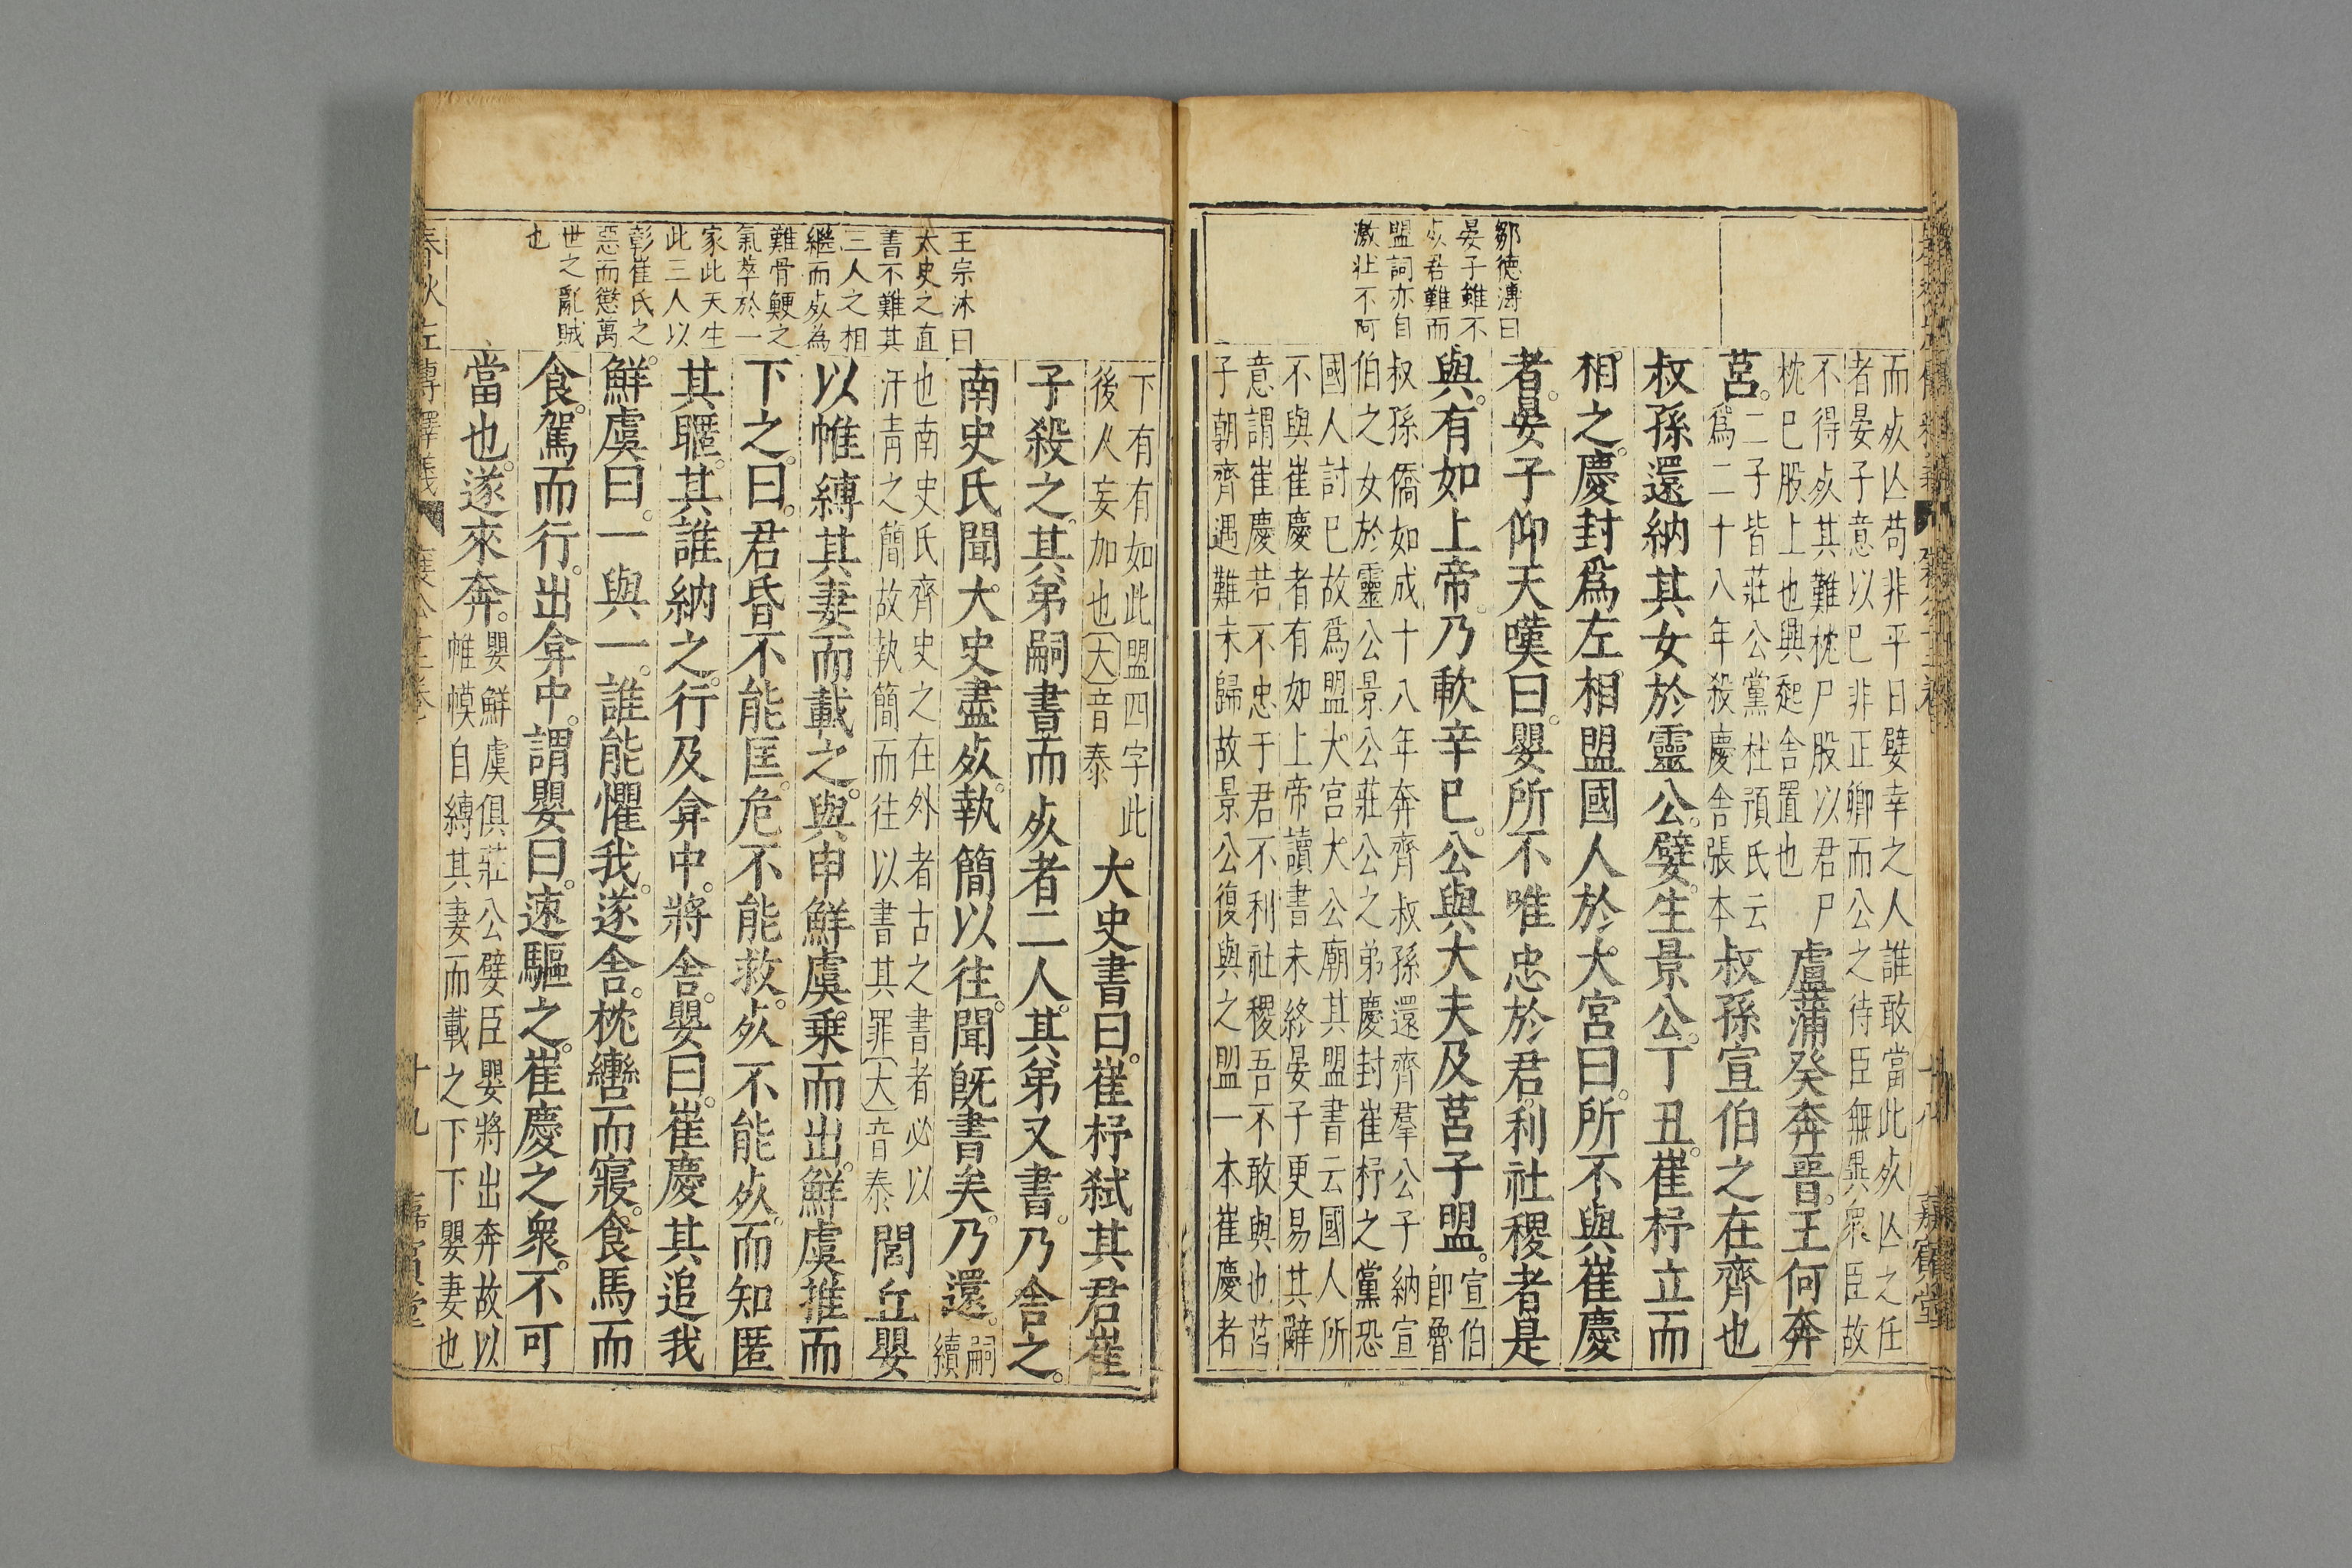 鄒德溥曰
晏子雖不
死君難而
盟詞亦自
激壯不阿
而死亾苟非平日嬖幸之人誰敢當此死亾之任
者晏子意以巳非正卿而公之待臣無異眾臣故
不得死其難枕尸股以君尸
枕巳股上也興起舍置也
盧蒲癸奔晉王何奔
莒
二子皆莊公黨杜預氏云
爲二十八年殺慶舍張本
叔孫宣伯之在齊也
叔孫還納其女於靈公嬖生景公丁丑崔杼立而
相之慶封爲左相盟國人於大宮曰所不與崔慶
者晏子仰天嘆曰嬰所不唯忠於君利社稷者是
與有如上帝乃歃辛巳公與大夫及莒子盟
宣伯
卽魯
叔孫僑如成十八年奔齊叔孫還齊羣公子納宣
伯之女於靈公景公莊公之弟慶封崔杼之黨恐
國人討巳故爲盟大宮大公廟其盟書云國人所
不與崔慶者有如上帝讀書未終晏子更易其辭
意謂崔慶若不忠于君不利社稷吾不敢與也莒
子朝齊遇難未歸故景公復與之盟一本崔慶者
王宗沐曰
太史之直
書不難其
三人之相
繼而死為
難骨鯁之
氣萃於一
家此天生
此三人以
彰崔氏之
惡而懲萬
世之亂賊
也
下有有如此盟四字此
後人妄加也〔大〕音泰
大史書曰崔杼弑其君崔
子殺之其弟嗣書而死者二人其弟又書乃舍之
南史氏聞大史盡死執簡以往聞既書矣乃還
嗣
續
也南史氏齊史之在外者古之書者必以
汗青之簡故執簡而往以書其罪〔大〕音泰
閭丘嬰
以帷縛其妻而載之與申鮮虞乗而出鮮虞推而
下之曰君昏不能匡危不能救死不能死而知匿
其暱其誰納之行及弇中將舍嬰曰崔慶其追我
鮮虞曰一與一誰能懼我遂舍枕轡而寢食馬而
食駕而行出弇中謂嬰曰速驅之崔慶之衆不可
當也遂來奔
嬰鮮虞俱莊公嬖臣嬰將出奔故以
帷幙自縛其妻而載之下下嬰妻也
春秋左傳釋義
十九
嘉賓堂